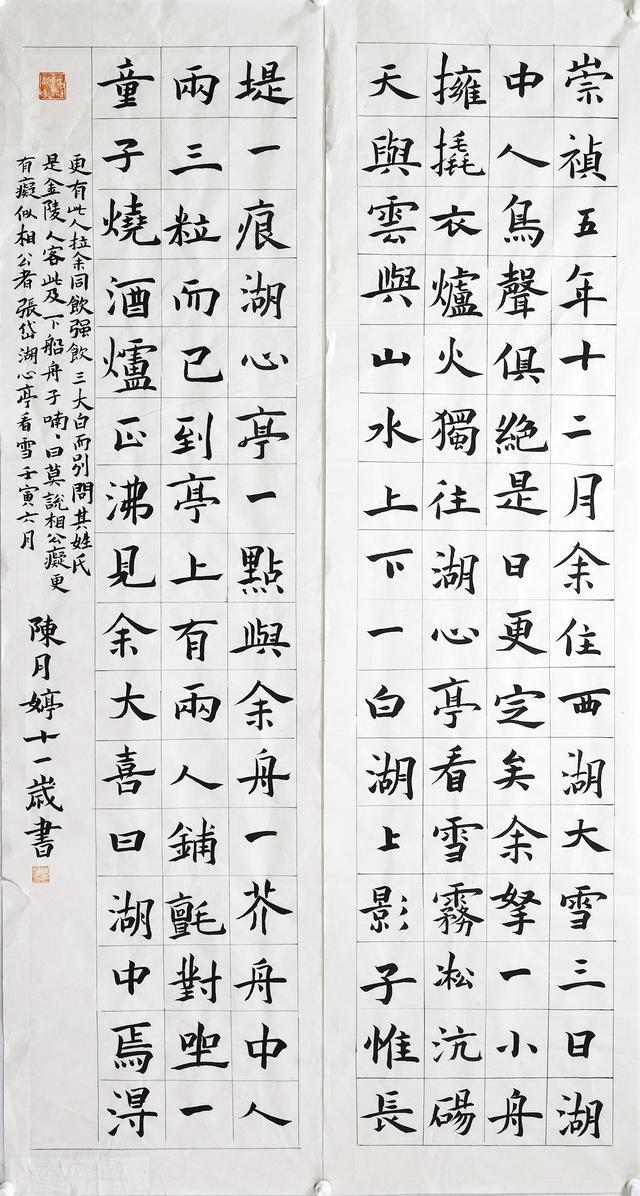 崇禎五年十二月余住西湖大雪三日湖
中人鳥聲俱絕是日更定矣余拏一小舟
擁毳衣爐火獨往湖心亭看雪霧凇沆碭
天與雲與山水上下一白湖上影子惟長
堤一痕湖心亭一點與余舟一芥舟中人
兩三粒而已到亭上有兩人鋪氈對坐一
童子燒酒爐正沸見余大喜曰湖中焉得
更有此人拉余同飲强飲三大白而別問其姓氏
是金陵人客此及下船舟子喃、曰莫説相公癡更
有癡似相公者張岱湖心亭看雪壬寅六月
陳月婷十一歲書